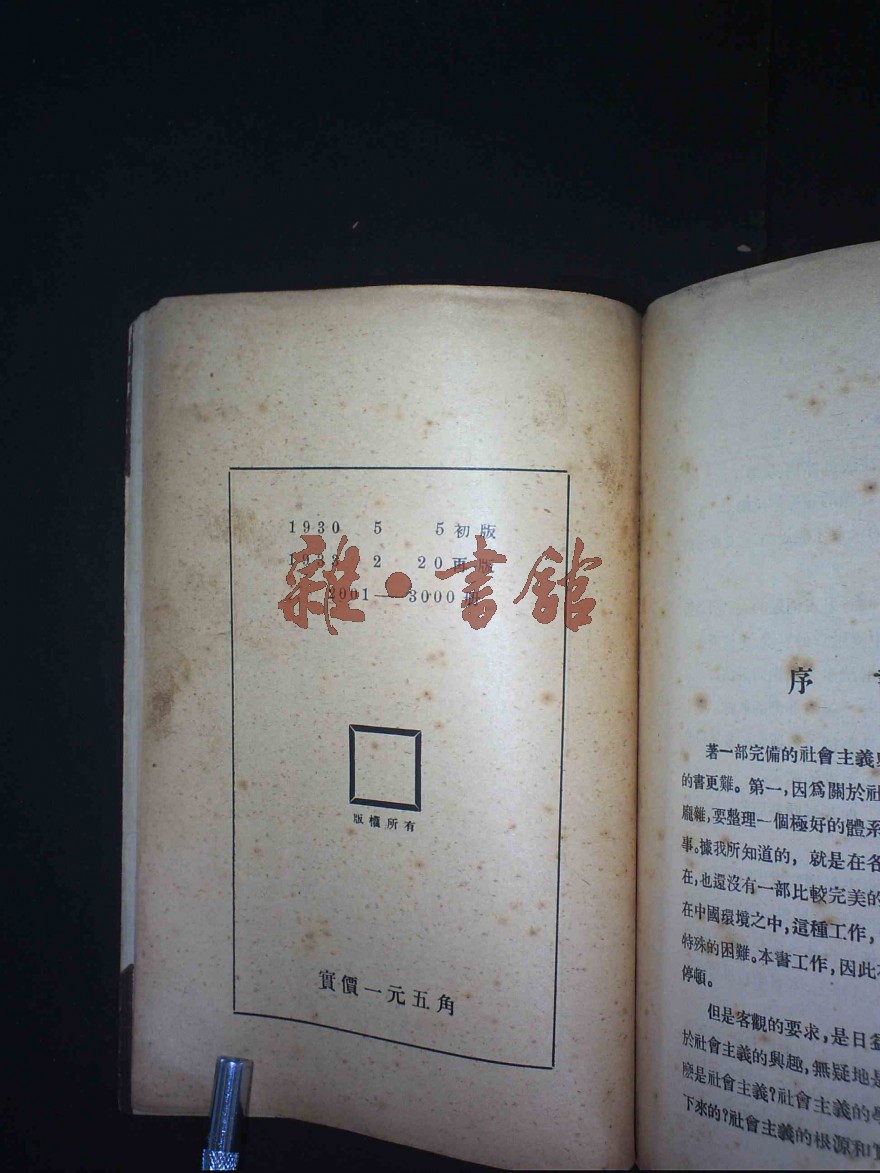 1930 5 5初版
1933 2 20再版
2001—3000冊
雜·書館
版權所有
實價一元五角
序
著一部完備的社會主義
的書更難。第一，因爲關於社
龐雜，要整理一個極好的體系
事。據我所知道的，就是在各
在，也還沒有一部比較完美的
在中國環境之中，這種工作，
特殊的困難。本書工作，因此
停頓。
但是客觀的要求，是日益
於社會主義的興趣，無疑地是
麽是社會主義？社會主義的學
下來的？社會主義的根源和